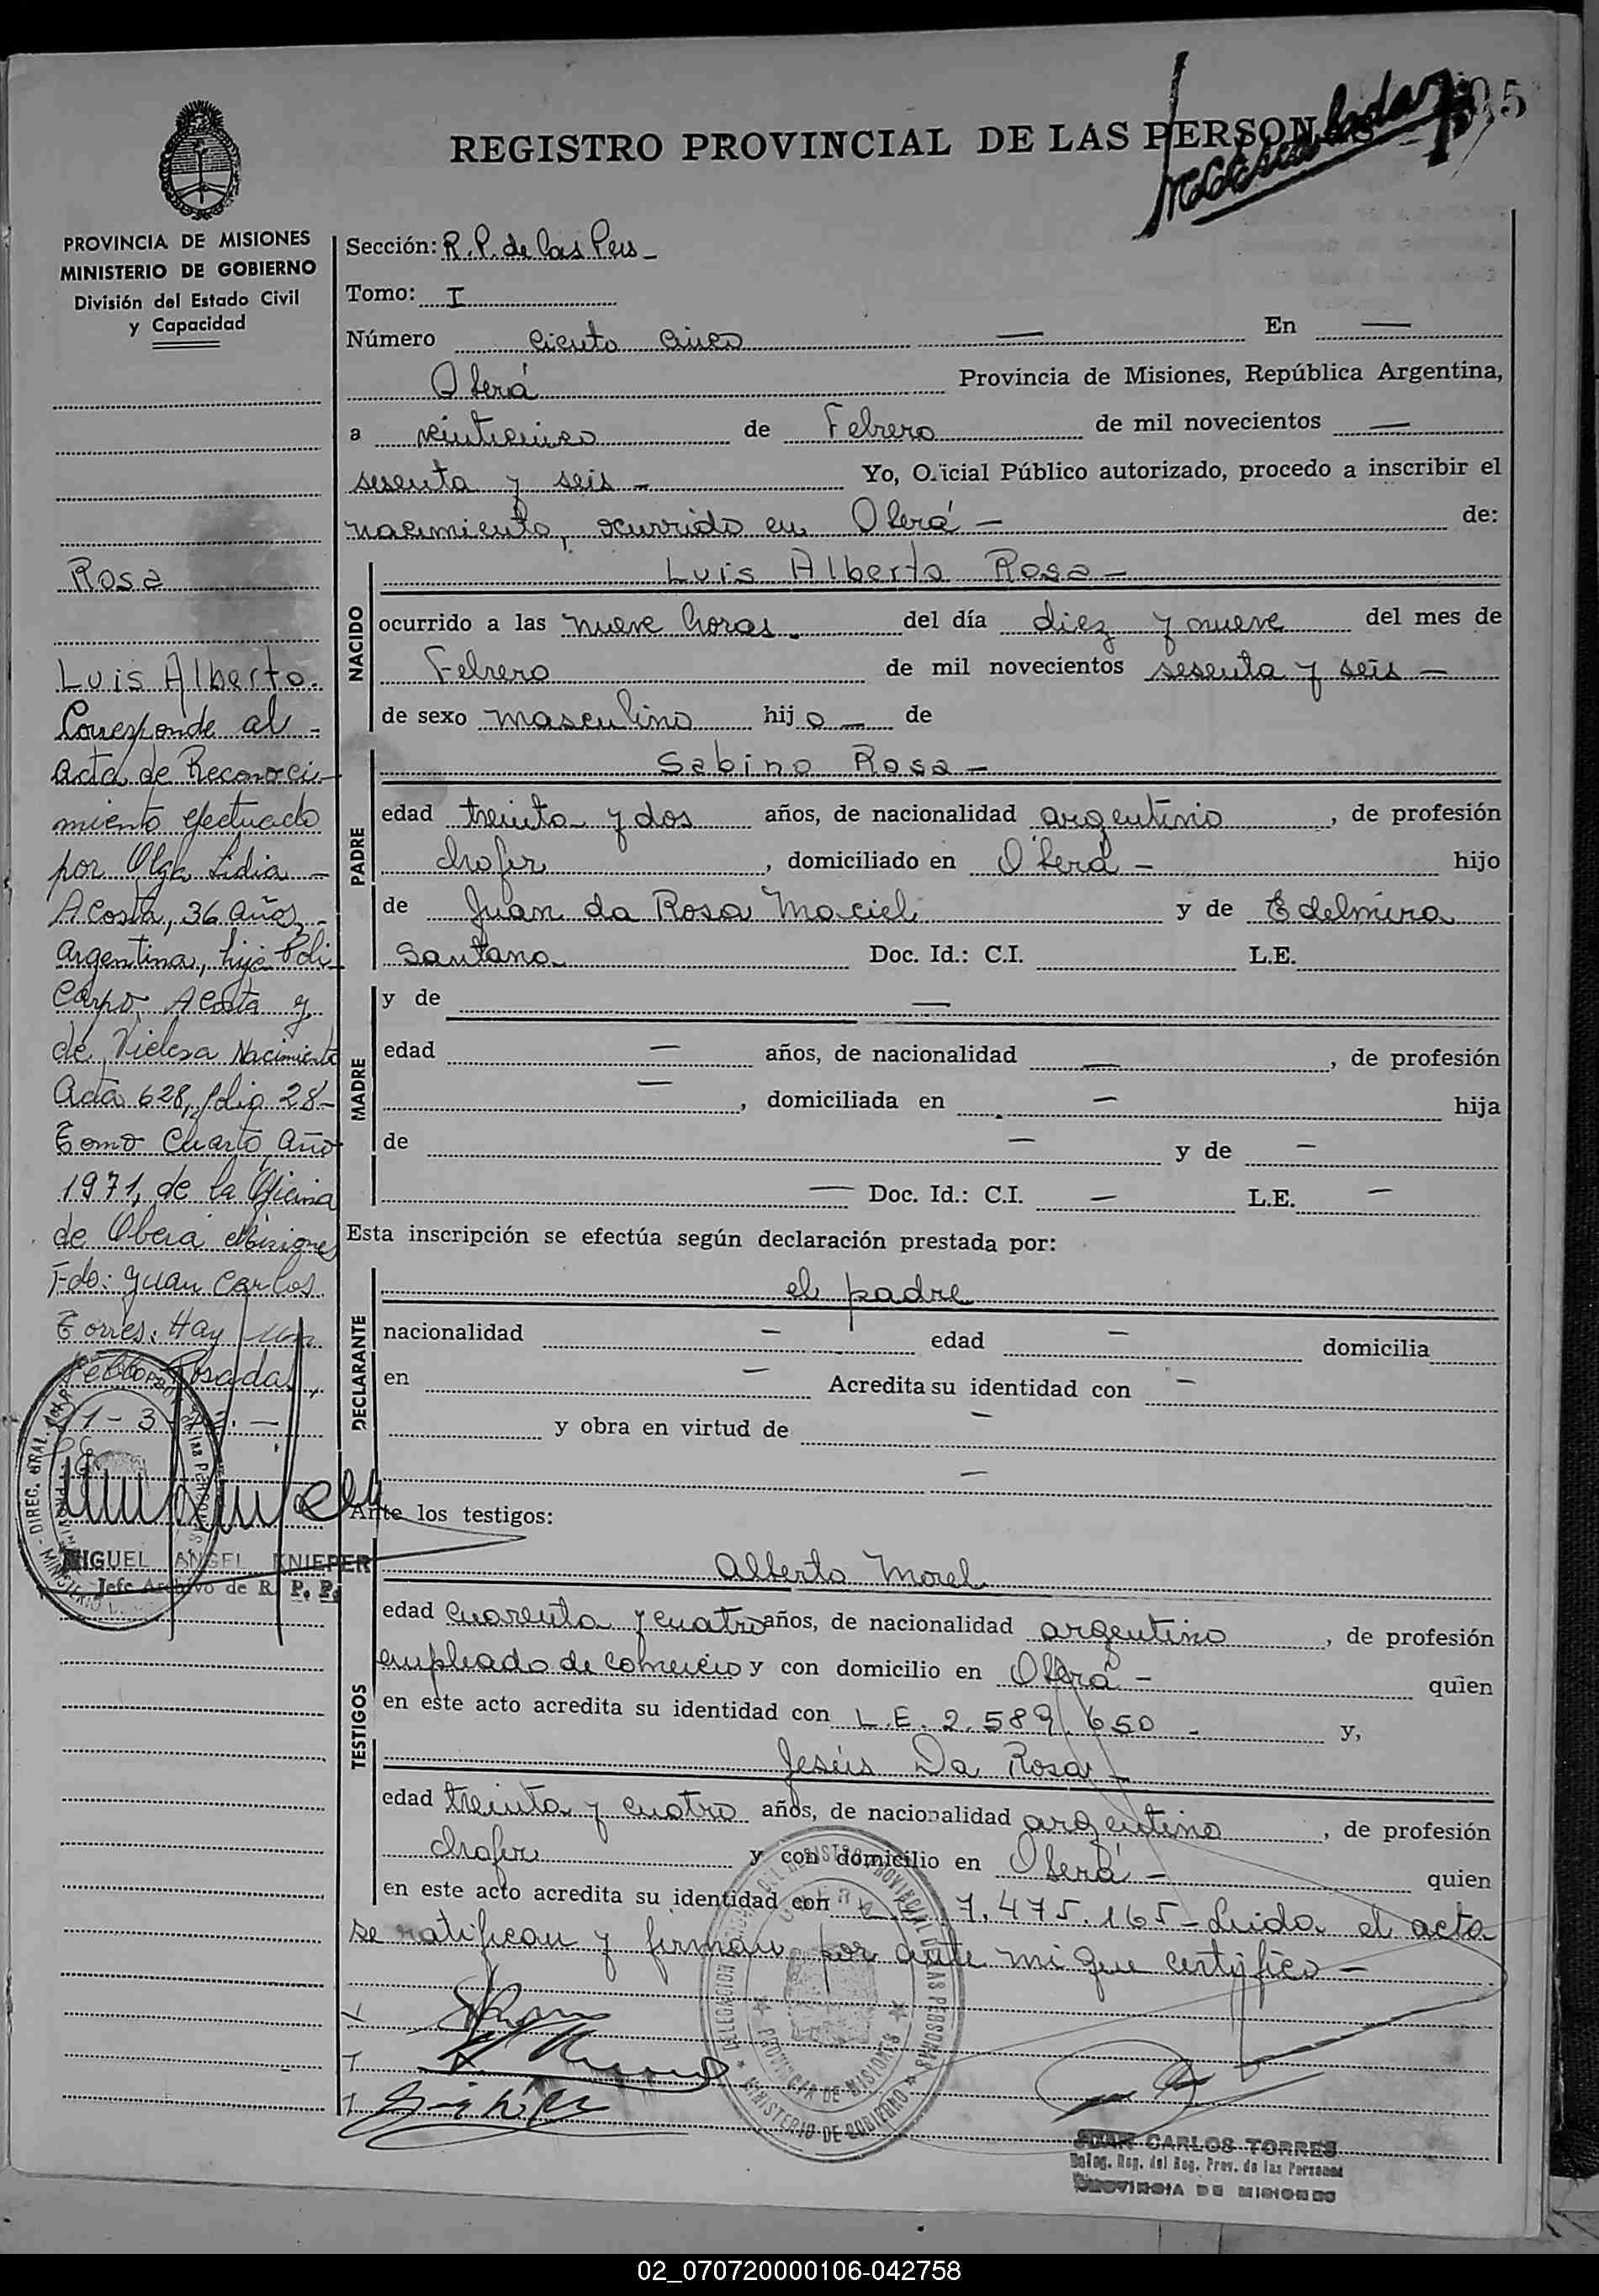 REGISTRO PROVINCIAL DE LAS PERSONAS
PROVINCIA DE MISIONES
MINISTERIO DE GOBIERNO
División del Estado Civil
y Capacidad
Rosa
Luis Alberto.
Corresponde al
acta de Reconoci-
miento efectuado
por Olga Lidia
Acosta, 36 años,
argentina, hija Poli
carpo Acosta y
de Nacimiento
Acta 628, folio 28-
Tomo Cuarto, Año
1971, de la Oficina
de Oberá Misiones
Fdo: Juan Carlos
Torres. Hay un
sello Posadas,
MIGUEL ANGEL KNIEPER
Jefe Archivo de R. P. P.
Sección: R. P. de las Pers -
Tomo: I
Número ciento cinco — En —
Oberá Provincia de Misiones, República Argentina,
a veinticinco de Febrero de mil novecientos —
sesenta y seis - Yo, Oficial Público autorizado, procedo a inscribir el
nacimiento, ocurrido en Oberá - de:
NACIDO
Luis Alberto Rosa -
ocurrido a las nueve horas. del día diez y nueve del mes de
Febrero de mil novecientos sesenta y seis -
de sexo masculino hijo — de
PADRE
Sabino Rosa -
edad treinta y dos años, de nacionalidad argentino, de profesión
chofer, domiciliado en Oberá - hijo
de Juan da Rosa Maciel y de Edelmira
Santana Doc. Id.: C.I. L.E.
MADRE
y de —
edad — años, de nacionalidad —, de profesión
—, domiciliada en — hija
de — y de —
— Doc. Id.: C.I. — L.E. —
Esta inscripción se efectúa según declaración prestada por:
DECLARANTE
el padre
nacionalidad — edad — domicilia
en — Acredita su identidad con —
y obra en virtud de —
—
Ante los testigos:
TESTIGOS
Alberto Morel
edad cuarenta y cuatro años, de nacionalidad argentino, de profesión
empleado de comercio y con domicilio en Oberá - quien
en este acto acredita su identidad con L.E. 2.589.650 - y,
Jesús Da Rosa -
edad treinta y cuatro años, de nacionalidad argentino, de profesión
chofer y con domicilio en Oberá - quien
en este acto acredita su identidad con 7.475.165 - Leida el acta
se ratifican y firman por ante mi que certifico -
DELEGACION DEL REGISTRO PROVINCIAL DE LAS PERSONAS
MINISTERIO DE GOBIERNO
PROVINCIA DE MISIONES
JUAN CARLOS TORRES
Deleg. Reg. del Reg. Prov. de las Personas
PROVINCIA DE MISIONES
02_070720000106-042758